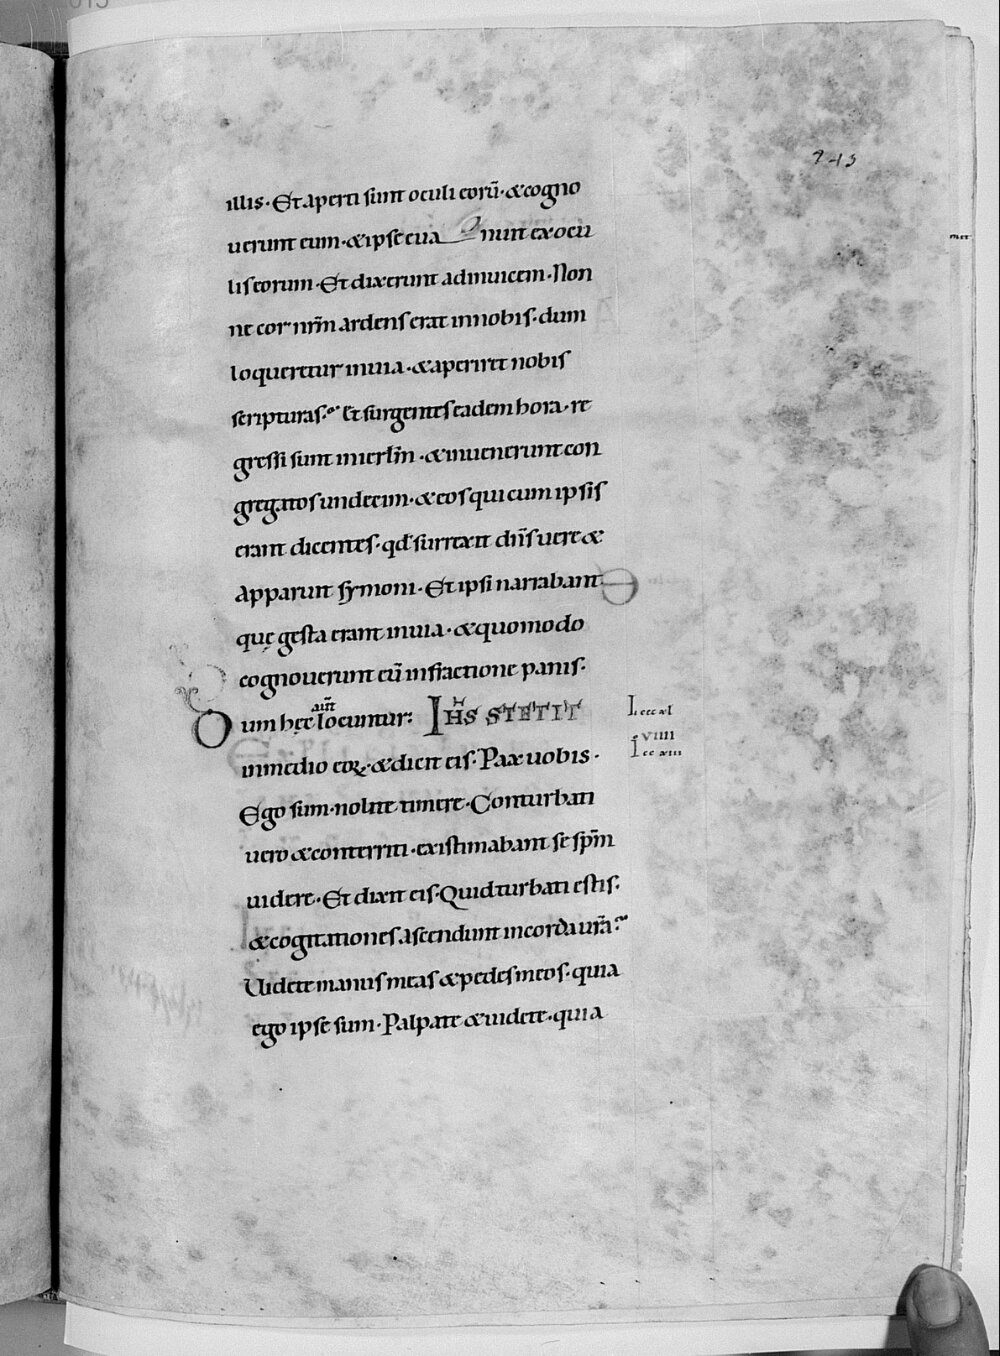 243
illis· Et aperti sunt oculi eorū· & cogno
uerunt eum· & ipse eua nuit ex ocu
lis eorum· Et dixerunt adinuicem· Non
ne cor nr̄m ardens erat innobis· dum
loqueretur inuia· & aperiret nobis
scripturas? Et surgentes eadem hora· re
gressi sunt inierlm̄· & inuenerunt con
gregatos undecim· & eos qui cum ipsis
erant dicentes· qd̄ surrexit dn̄s uere &
apparuit symoni· Et ipsi narrabant
quę gesta erant inuia· & quomodo
cognouerunt eū infractione panis·
Dum hęc aūt locuntur: IH̄S STETIT
I cccxl
inmedio eoꝝ· & dicit eis· Pax uobis·
viiii
I ccxiii
Ego sum· nolite timere· Conturbati
uero & conterriti· existimabant se spm̄
uidere· Et dixit eis· Quid turbati estis·
& cogitationes ascendunt incorda ur̄a?
Uidete manus meas & pedes meos· quia
ego ipse sum· Palpate & uidete· quia